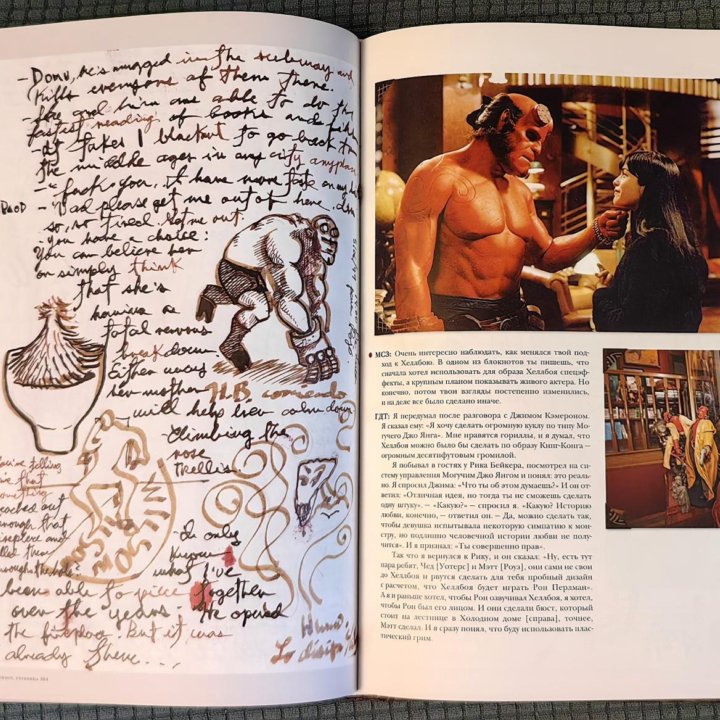 - Donu, he's mugged in the subway and
kills everyone of them there.
- She and him are able to do the
fastest reading of books and
- It takes 1 blackout to go back to
the middle ages in any city anyplace
- "Fuck you, I have more
- "Dad please get me out of here, I'm
so, so tired. let me out.
- you have a choice:
You can believe her
or simply think
that she's
having a
total nervous
breakdown.
Either way
her mother
will help her calm down
H.B. comiendo
- Climbing the
rose
trellis
You're telling
me that
something
reached out
enough that
through the hole
- I only
know
what I've
been able to piece together
over the years. He opened
the fireplace. But it was
already there...
МСЗ: Очень интересно наблюдать, как менялся твой под-
ход к Хеллбою. В одном из блокнотов ты пишешь, что
сначала хотел использовать для образа Хеллбоя спецэф-
фекты, а крупным планом показывать живого актера. Но
конечно, потом твои взгляды постепенно изменились,
и на деле все было сделано иначе.
ГДТ: Я передумал после разговора с Джимом Кэмероном.
Я сказал ему: «Я хочу сделать огромную куклу по типу Мо-
гучего Джо Янга». Мне нравятся гориллы, и я думал, что
Хеллбоя можно было бы сделать по образу Кинг-Конга —
огромным десятифутовым громилой.
Я побывал в гостях у Рика Бейкера, посмотрел на си-
стему управления Могучим Джо Янгом и понял: это реаль-
но. Я спросил Джима: «Что ты об этом думаешь?» И он от-
ветил: «Отличная идея, но тогда ты не сможешь сделать
одну штуку». — «Какую?» — спросил я. «Какую? Историю
любви, конечно, — ответил он. — Да, можно сделать так,
чтобы девушка испытывала некоторую симпатию к мон-
стру, но подлинно человечной истории любви не полу-
чится». И я признал: «Ты совершенно прав».
Так что я вернулся к Рику, и он сказал: «Ну, есть тут
пара ребят, Чед [Уотерс] и Мэтт [Роуз], они сами не свои
до Хеллбоя и рвутся сделать для тебя пробный дизайн
с расчетом, что Хеллбоя будет играть Рон Перлман».
А я и раньше хотел, чтобы Рон озвучивал Хеллбоя, я хотел,
чтобы Рон был его лицом. И они сделали бюст, который
стоит на лестнице в Холодном доме [справа], точнее,
Мэтт сделал. И я сразу понял, что буду использовать плас-
тический грим.